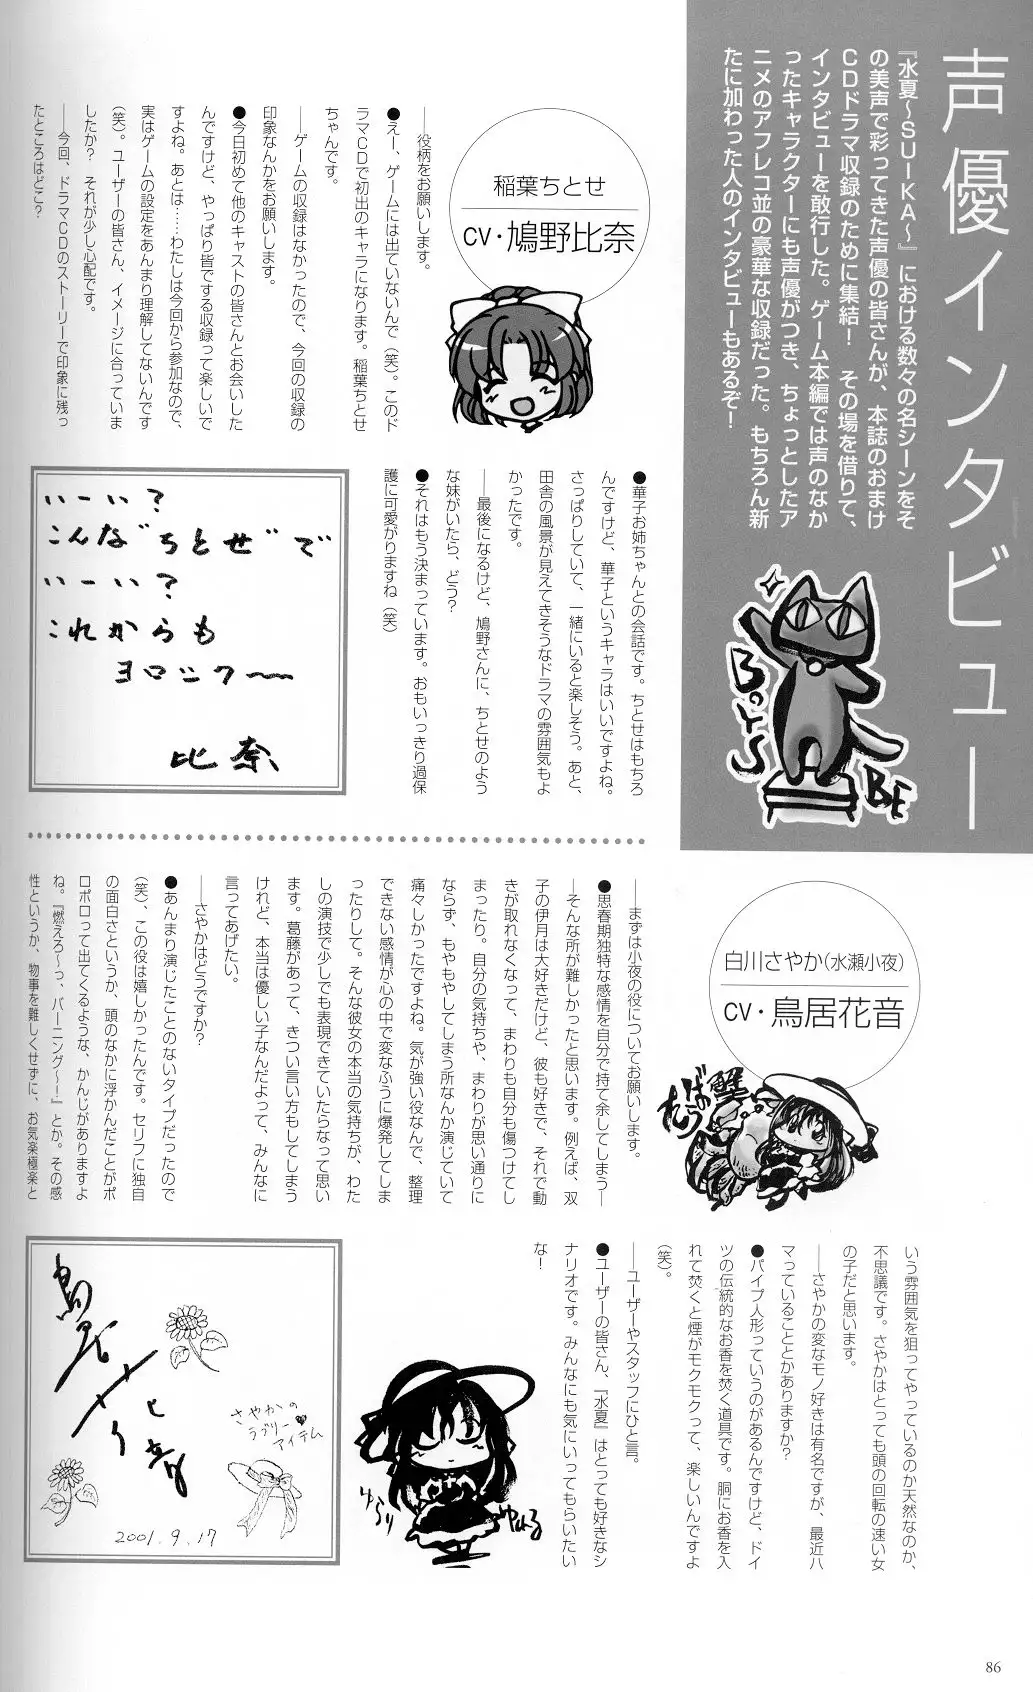 声優インタビュー
『水夏～SU－KA～』における数々の名シーンをそ
の美声で彩ってきた声優の皆さんが、本誌のおまけ
CDドラマ収録のために集結！　その場を借りて、
インタビューを敢行した。ゲーム本編では声のなか
ったキャラクターにも声優がつき、ちょっとしたア
ニメのアフレコ並の豪華な収録だった。もちろん新
たに加わった人のインタビューもあるぞ！
BorS
BE
稲葉ちとせ
CV・鳩野比奈
――役柄をお願いします。
●えー、ゲームには出ていないんで（笑）。このド
ラマCDで初出のキャラになります。稲葉ちとせ
ちゃんです。
――ゲームの収録はなかったので、今回の収録の
印象なんかをお願いします。
●今日初めて他のキャストの皆さんとお会いした
んですけど、やっぱり皆でする収録って楽しいで
すよね。あとは……わたしは今回から参加なので、
実はゲームの設定をあんまり理解してないんです
（笑）。ユーザーの皆さん、イメージに合っていま
したか？　それが少し心配です。
――今回、ドラマCDのストーリーで印象に残っ
たところはどこ？
●華子お姉ちゃんとの会話です。ちとせはもちろ
んですけど、華子というキャラはいいですよね。
さっぱりしていて、一緒にいると楽しそう。あと、
田舎の風景が見えてきそうなドラマの雰囲気もよ
かったです。
――最後になるけど、鳩野さんに、ちとせのよう
な妹がいたら、どう？
●それはもう決まっています。おもいっきり過保
護に可愛がりますね（笑）
いーい？
こんな"ちとせ"で
いーい？
これからも
ヨロシク～
比奈
白川さやか（水瀬小夜）
CV・鳥居花音
蟹
ばう
――まずは小夜の役についてお願いします。
●思春期独特な感情を自分で持て余してしまう―
―そんな所が難しかったと思います。例えば、双
子の伊月は大好きだけど、彼も好きで、それで動
きが取れなくなって、まわりも自分も傷つけてし
まったり。自分の気持ちや、まわりが思い通りに
ならず、もやもやしてしまう所なんか演じていて
痛々しかったですよね。気が強い役なんで、整理
できない感情が心の中で変なふうに爆発してしま
ったりして。そんな彼女の本当の気持ちが、わた
しの演技で少しでも表現できていたらなって思い
ます。葛藤があって、きつい言い方もしてしまう
けれど、本当は優しい子なんだよって、みんなに
言ってあげたい。
――さやかはどうですか？
●あんまり演じたことのないタイプだったので
（笑）、この役は嬉しかったんです。セリフに独自
の面白さというか、頭のなかに浮かんだことがポ
ロポロって出てくるような、かんじがありますよ
ね。『燃えろ～っ、バーニング～！』とか。その感
性というか、物事を難しくせずに、お気楽極楽と
いう雰囲気を狙ってやっているのか天然なのか、
不思議です。さやかはとっても頭の回転の速い女
の子だと思います。
――さやかの変なモノ好きは有名ですが、最近ハ
マっていることとかありますか？
●パイプ人形っていうのがあるんですけど、ドイ
ツの伝統的なお香を焚く道具です。胴にお香を入
れて焚くと煙がモクモクって、楽しいんですよ
（笑）。
――ユーザーやスタッフにひと言。
●ユーザーの皆さん、『水夏』はとっても好きなシ
ナリオです。みんなにも気にいってもらいたい
な！
ゆらり
さやかの
ラブリー
アイテム
2001.9.17
86